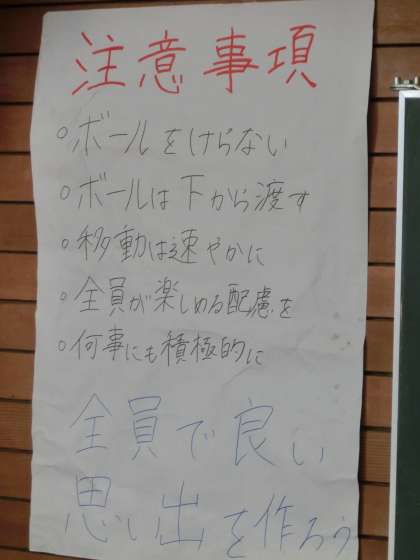 注意事項
○ボールをけらない
○ボールは下から渡す
○移動は速やかに
○全員が楽しめる配慮を
○何事にも積極的に
全員で良い
思い出を作ろう